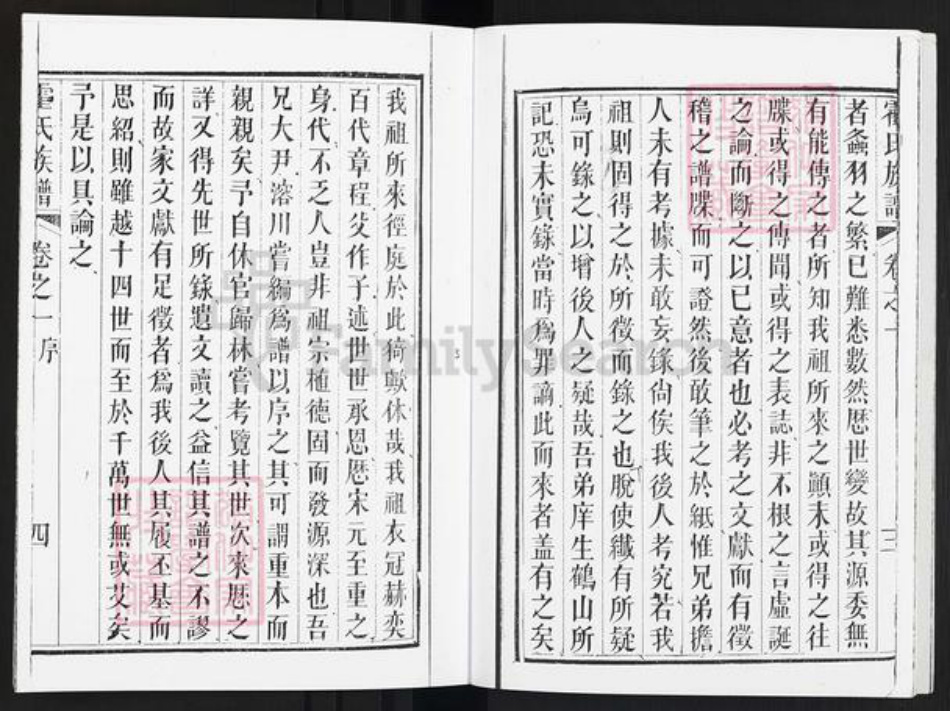 霍氏族譜 卷之一 三
者螽羽之繁已難悉數然歷世變故其源委無
有能傳之者所知我祖所來之顛末或得之往
牒或得之傳聞或得之表誌非不根之言虛誕
之論而斷之以已意者也必考之文獻而有徵
稽之譜牒而可證然後敢筆之於紙惟兄弟擔
人未有考據未敢妄錄尙俟我後人考究若我
祖則固得之於所徵而錄之也脫使纎有所疑
烏可錄之以增後人之疑哉吾弟庠生鶴山所
記恐未實錄當時爲罪謫此而來者盖有之矣
我祖所來徑庭於此猗歟休哉我祖衣冠赫奕
百代章程父作子述世世承恩歷宋元至重之
身代不乏人豈非祖宗植德固而發源深也吾
兄大尹溶川嘗編爲譜以序之其可謂重本而
親親矣予自休官歸林嘗考覽其世次來歷之
詳又得先世所錄遺文讀之益信其譜之不謬
而故家文獻有足徵者爲我後人其履丕基而
思紹則雖越十四世而至於千萬世無或艾矣
予是以具論之
霍氏族譜 卷之一 序 四
FamilySearch